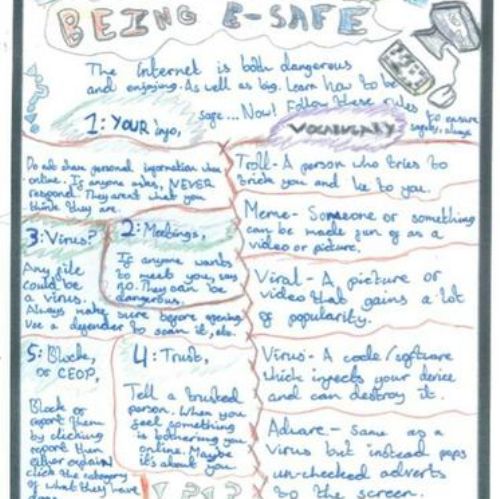 BEING E-SAFE
The Internet is both dangerous
and enjoying. As well as big. Learn how to be
sage... Now! Follow these rules
to ensure
safety, always
1: YOUR info,
Do not share personal information when
online. If anyone asks, NEVER
respond. They arent what you
think they are.
3: Virus?
Any file
could be
a virus.
Always make sure before opening
Use a defender to scan it, etc.
2: Meetings,
If anyone wants
to meet you, say
no. They can be
dangerous.
5: Block,
or CEOP,
Block or
report them
by clicking
report then
either explain
click the category
of what they have
4: Trust,
Tell a trusted
person. When you
feel something
is bothering you
online. Maybe
it's about you
! ?!?
VOCABULARY
Troll- A person who tries to
trick you and lie to you.
Meme- Someone or something
can be made fun of as a
video or picture.
Viral- A picture or
video that gains a lot
of popularity.
Virus- A code/software
which injects your device
and can destroy it.
Adware- Same as a
virus but instead pops
un-checked adverts
to the screen.